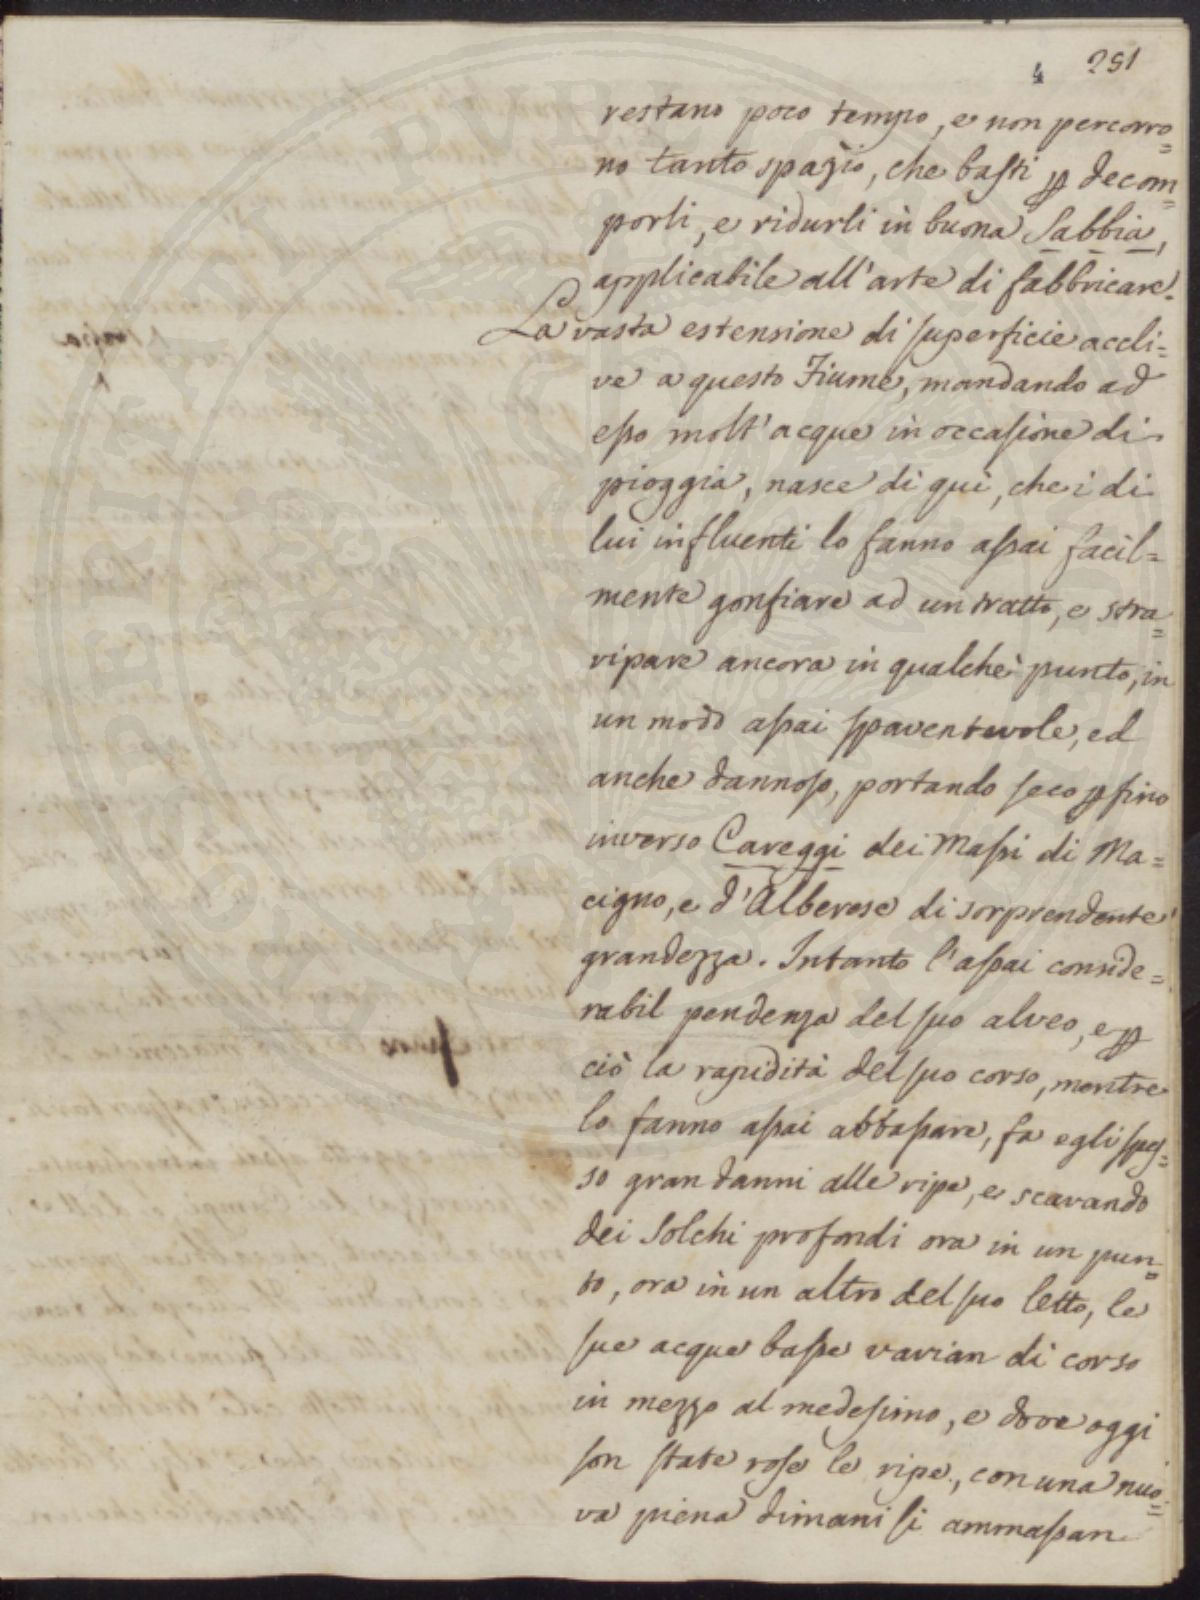 4 251
restano poco tempo, e non percorro=
no tanto spazio, che basti p decom=
porli, e ridurli in buona Sabbia,
applicabile all'arte di fabbricare.
La vasta estensione di superficie accli=
ve a questo Fiume, mandando ad
esso molt'acque in occasione di
pioggia, nasce di qui, che i di
lui influenti lo fanno assai facil=
mente gonfiare ad un tratto, e stra=
ripare ancora in qualche punto, in
un modo assai spaventevole, ed
anche dannoso, portando seco pfino
inverso Careggi dei Massi di Ma=
cigno, e d'Alberese di sorprendente
grandezza. Intanto l'assai conside=
rabil pendenza del suo alveo, e p
ciò la rapidità del suo corso, mentre
lo fanno assai abbassare, fa egli spes=
so gran danni alle ripe, e scavando
dei Solchi profondi ora in un pun=
to, ora in un altro del suo letto, le
sue acque basse varian di corso
in mezzo al medesimo, e dove oggi
son state rose le ripe, con una nuo=
va piena dimani si ammassan